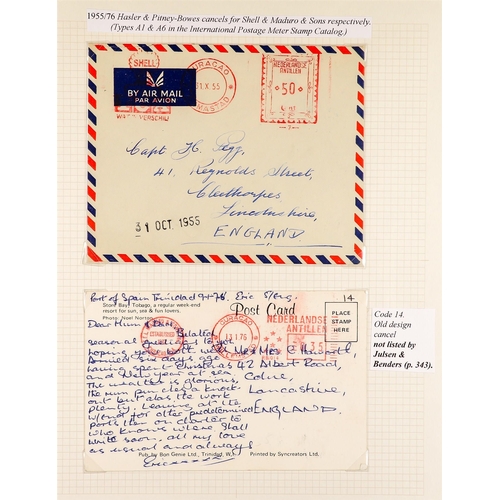 1955/76 Hasler & Pitney-Bowes cancels for Shell & Maduro & Sons respectively.
(Types A1 & A6 in the International Postage Meter Stamp Catalog.)
SHELL
BY AIR MAIL
PAR AVION
CURAÇAO
31.X 55
NEDERLANDSE
ANTILLEN
50
Capt H. Pegg,
41, Reynolds Street,
Cleethorpes
Lincolnshire,
ENGLAND.
31 OCT 1955
Port of Spain Trinidad 9-1-76. Eric S/Eng.
Store Bay, Tobago, a regular week-end
resort for sun, sea & fun lovers.
Photo: Noel Norton
Post Card
14
PLACE
STAMP
HERE
Dear Mum & Dad
Belated
seasonal greetings to you
hoping you both well
Arrived days ago
having spent Christmas
and New year at sea
The weather is glorious,
the Rum Pan cles a knock
out but alas the work
plenty. Leaving at the
for other predetermined
ports then on charter to
who knows where. Shall
write soon, all my love
as usual and always
Eric
CURAÇAO
13.1.76
NEDERLANDSE
ANTILLEN
35
Mr & Mrs C Haworth
42 Albert Road,
Colne,
Lancashire,
ENGLAND.
Pub. by Bon Genie Ltd., Trinidad, W.I. Printed by Syncreators Ltd.
Code 14.
Old design
cancel
not listed by
Julsen &
Benders (p. 343).